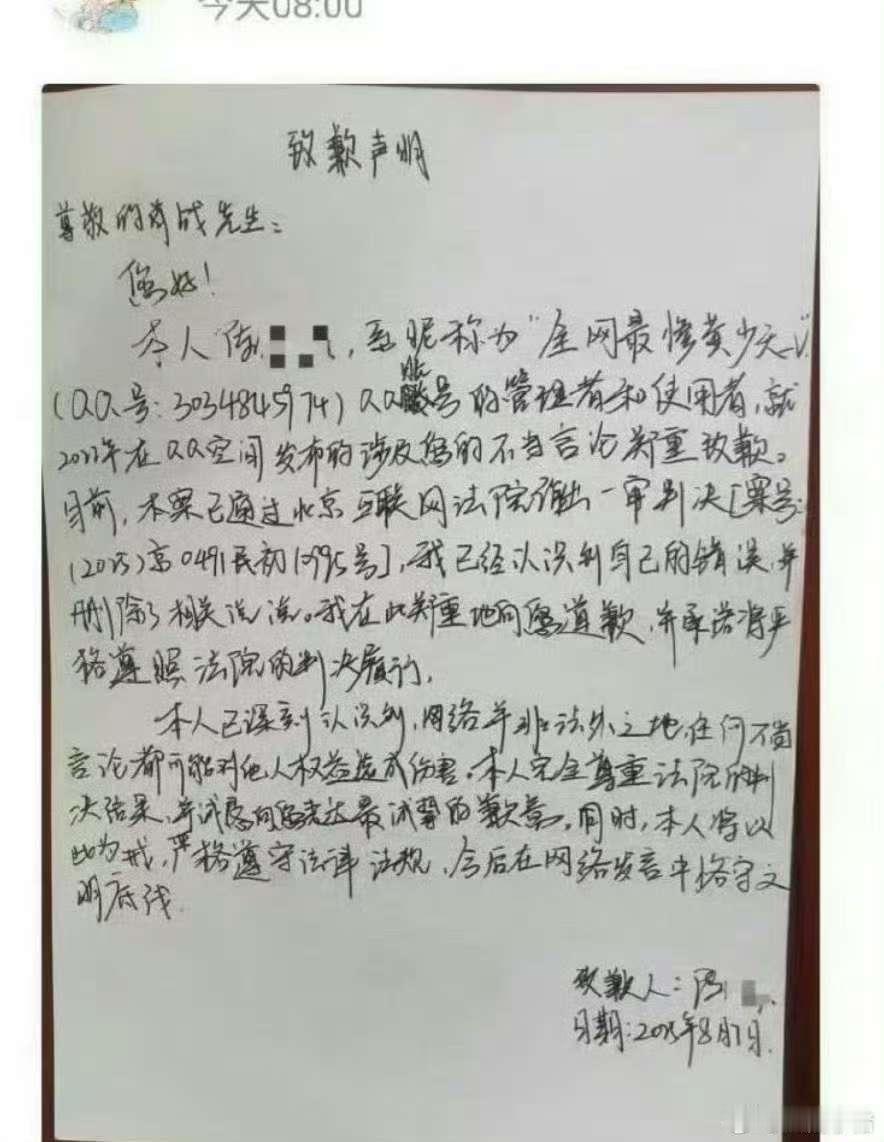 今天08:00
致歉声明
尊敬的肖战先生：
您好！
本人陈，系昵称为“全网最惨黄少天_V”
(QQ号：3034845974) QQ账号的管理者和使用者，就
2022年在QQ空间发布的涉及您的不当言论郑重致歉。
目前，本案已通过北京互联网法院作出一审判决[案号：
(2025)京0491民初10995号]，我已经认识到自己的错误，并
删除了相关说说。我在此郑重地向您道歉，并承诺将严
格遵照法院的判决履行。
本人已深刻认识到，网络并非法外之地，任何不当
言论都可能对他人权益造成伤害。本人完全尊重法院的判
决结果，并诚恳向您表达最诚挚的歉意。同时，本人将以
此为戒，严格遵守法律法规，今后在网络发言中恪守文
明底线。
致歉人：陈
日期：2025年8月7日.